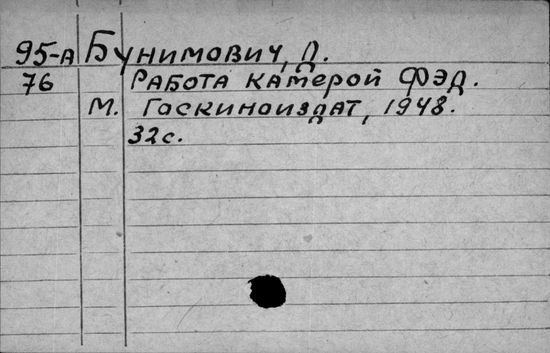 95-А Бунимович, Д.
76 Работа камерой ФЭД.
М. Госкиноиздат, 1948.
32 с.